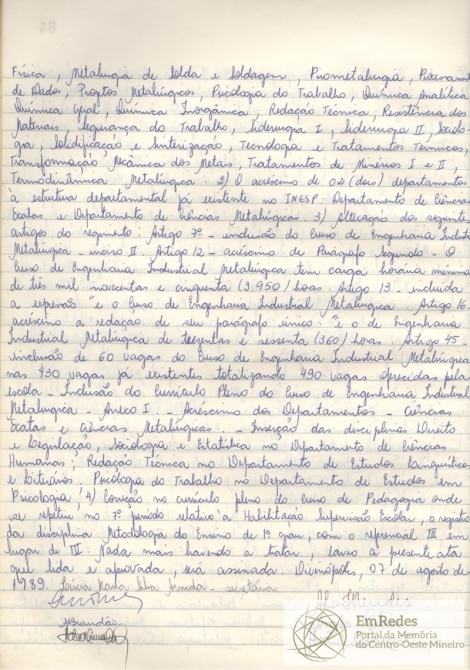 Física, Metalurgia de Solda e Soldagem, Pirometalurgia, Processament
de Dados, Projetos Metalúrgicos, Psicologia do Trabalho, Química Analítica
Química Geral, Química Inorgânica, Redação Técnica, Resistência dos
Materiais, Segurança do Trabalho, Siderurgia I, Siderurgia II, Sociolo
gia, Solidificação e Sinterização, Tecnologia e Tratamentos Térmicos,
Transformação Mecânica dos Metais, Tratamentos de Minérios I e II,
Termodinâmica Metalúrgica. 2) O acréscimo de 02 (dois) departamentos
à estrutura departamental já existente no INESP: Departamento de Ciências
Exatas e Departamento de Ciências Metalúrgicas. 3) Alteração dos seguintes
artigos do regimento: Artigo 7º - inclusão do Curso de Engenharia Industri
Metalúrgica - inciso II. Artigo 12 - acréscimo de Parágrafo Segundo - O
Curso de Engenharia Industrial Metalúrgica tem carga horária mínima
de três mil novecentas e cinquenta (3.950) horas. Artigo 13 - incluída
a expressão "e o Curso de Engenharia Industrial Metalúrgica. Artigo 16 -
acréscimo a redação de seu parágrafo único: "e o de Engenharia
Industrial Metalúrgica de trezentas e sessenta (360) horas. Artigo 45 -
inclusão de 60 vagas do Curso de Engenharia Industrial Metalúrgica
nas 430 vagas já existentes totalizando 490 vagas oferecidas pela
escola - Inclusão do Currículo Pleno do Curso de Engenharia Industrial
Metalúrgica - Anexo I. - Acréscimo dos Departamentos - Ciências
Exatas e Ciências Metalúrgicas. - Inserção das disciplinas Direito
e Legislação, Sociologia e Estatística no Departamento de Ciências
Humanas; Redação Técnica no Departamento de Estudos Linguísticos
e Literários. Psicologia do Trabalho no Departamento de Estudos em
Psicologia. 4) Correção no currículo pleno do Curso de Pedagogia onde
se repetiu no 7º período relativo à Habilitação Supervisão Escolar, o registro
da disciplina Metodologia do Ensino de 1º grau, com o referencial III em
lugar de IV. Nada mais havendo a tratar, lavro a presente ata
que lida e aprovada, será assinada. Divinópolis, 07 de agosto de
1989. Lúcia Maria Silva Arruda - secretária
Brandão
EmRedes
Portal da Memória
do Centro-Oeste Mineiro